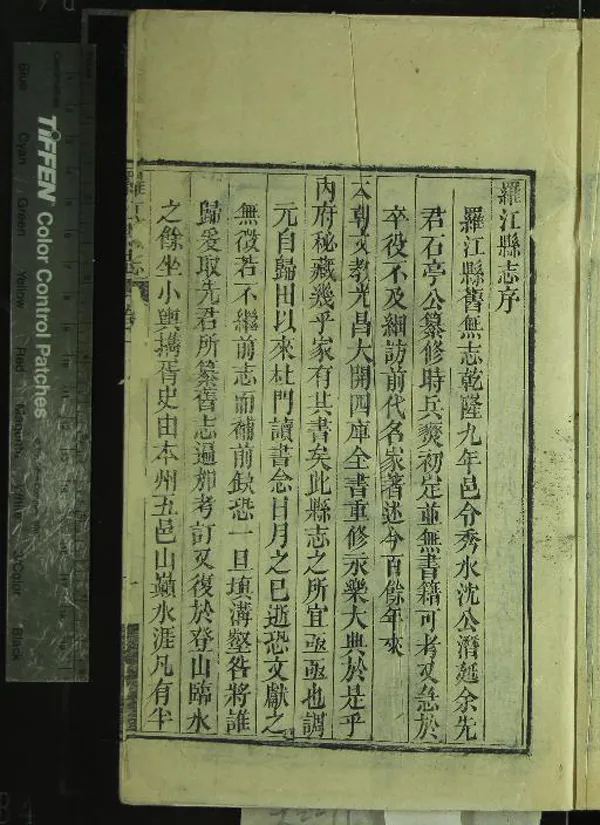 羅江縣志序
羅江縣舊無志乾隆九年邑令秀水沈公潛延余先
君石亭公纂修時兵燹初定並無書籍可考又急於
卒役不及細訪前代名家著述今百餘年來
本朝文教光昌大開四庫全書重修永樂大典於是乎
內府秘藏幾乎家有其書矣此縣志之所宜亟亟也調
元自歸田以來杜門讀書念日月之已逝恐文獻之
無徵若不繼前志而補前缺恐一旦填溝壑咎將誰
歸爰取先君所纂舊志遍加考訂又復於登山臨水
之餘坐小輿攜胥史由本州五邑山巔水涯凡有半
羅江縣志
TIFFEN Color Control Patches
Blue
Cyan
Green
Yellow
Red
Magenta
White
3/Color
Black